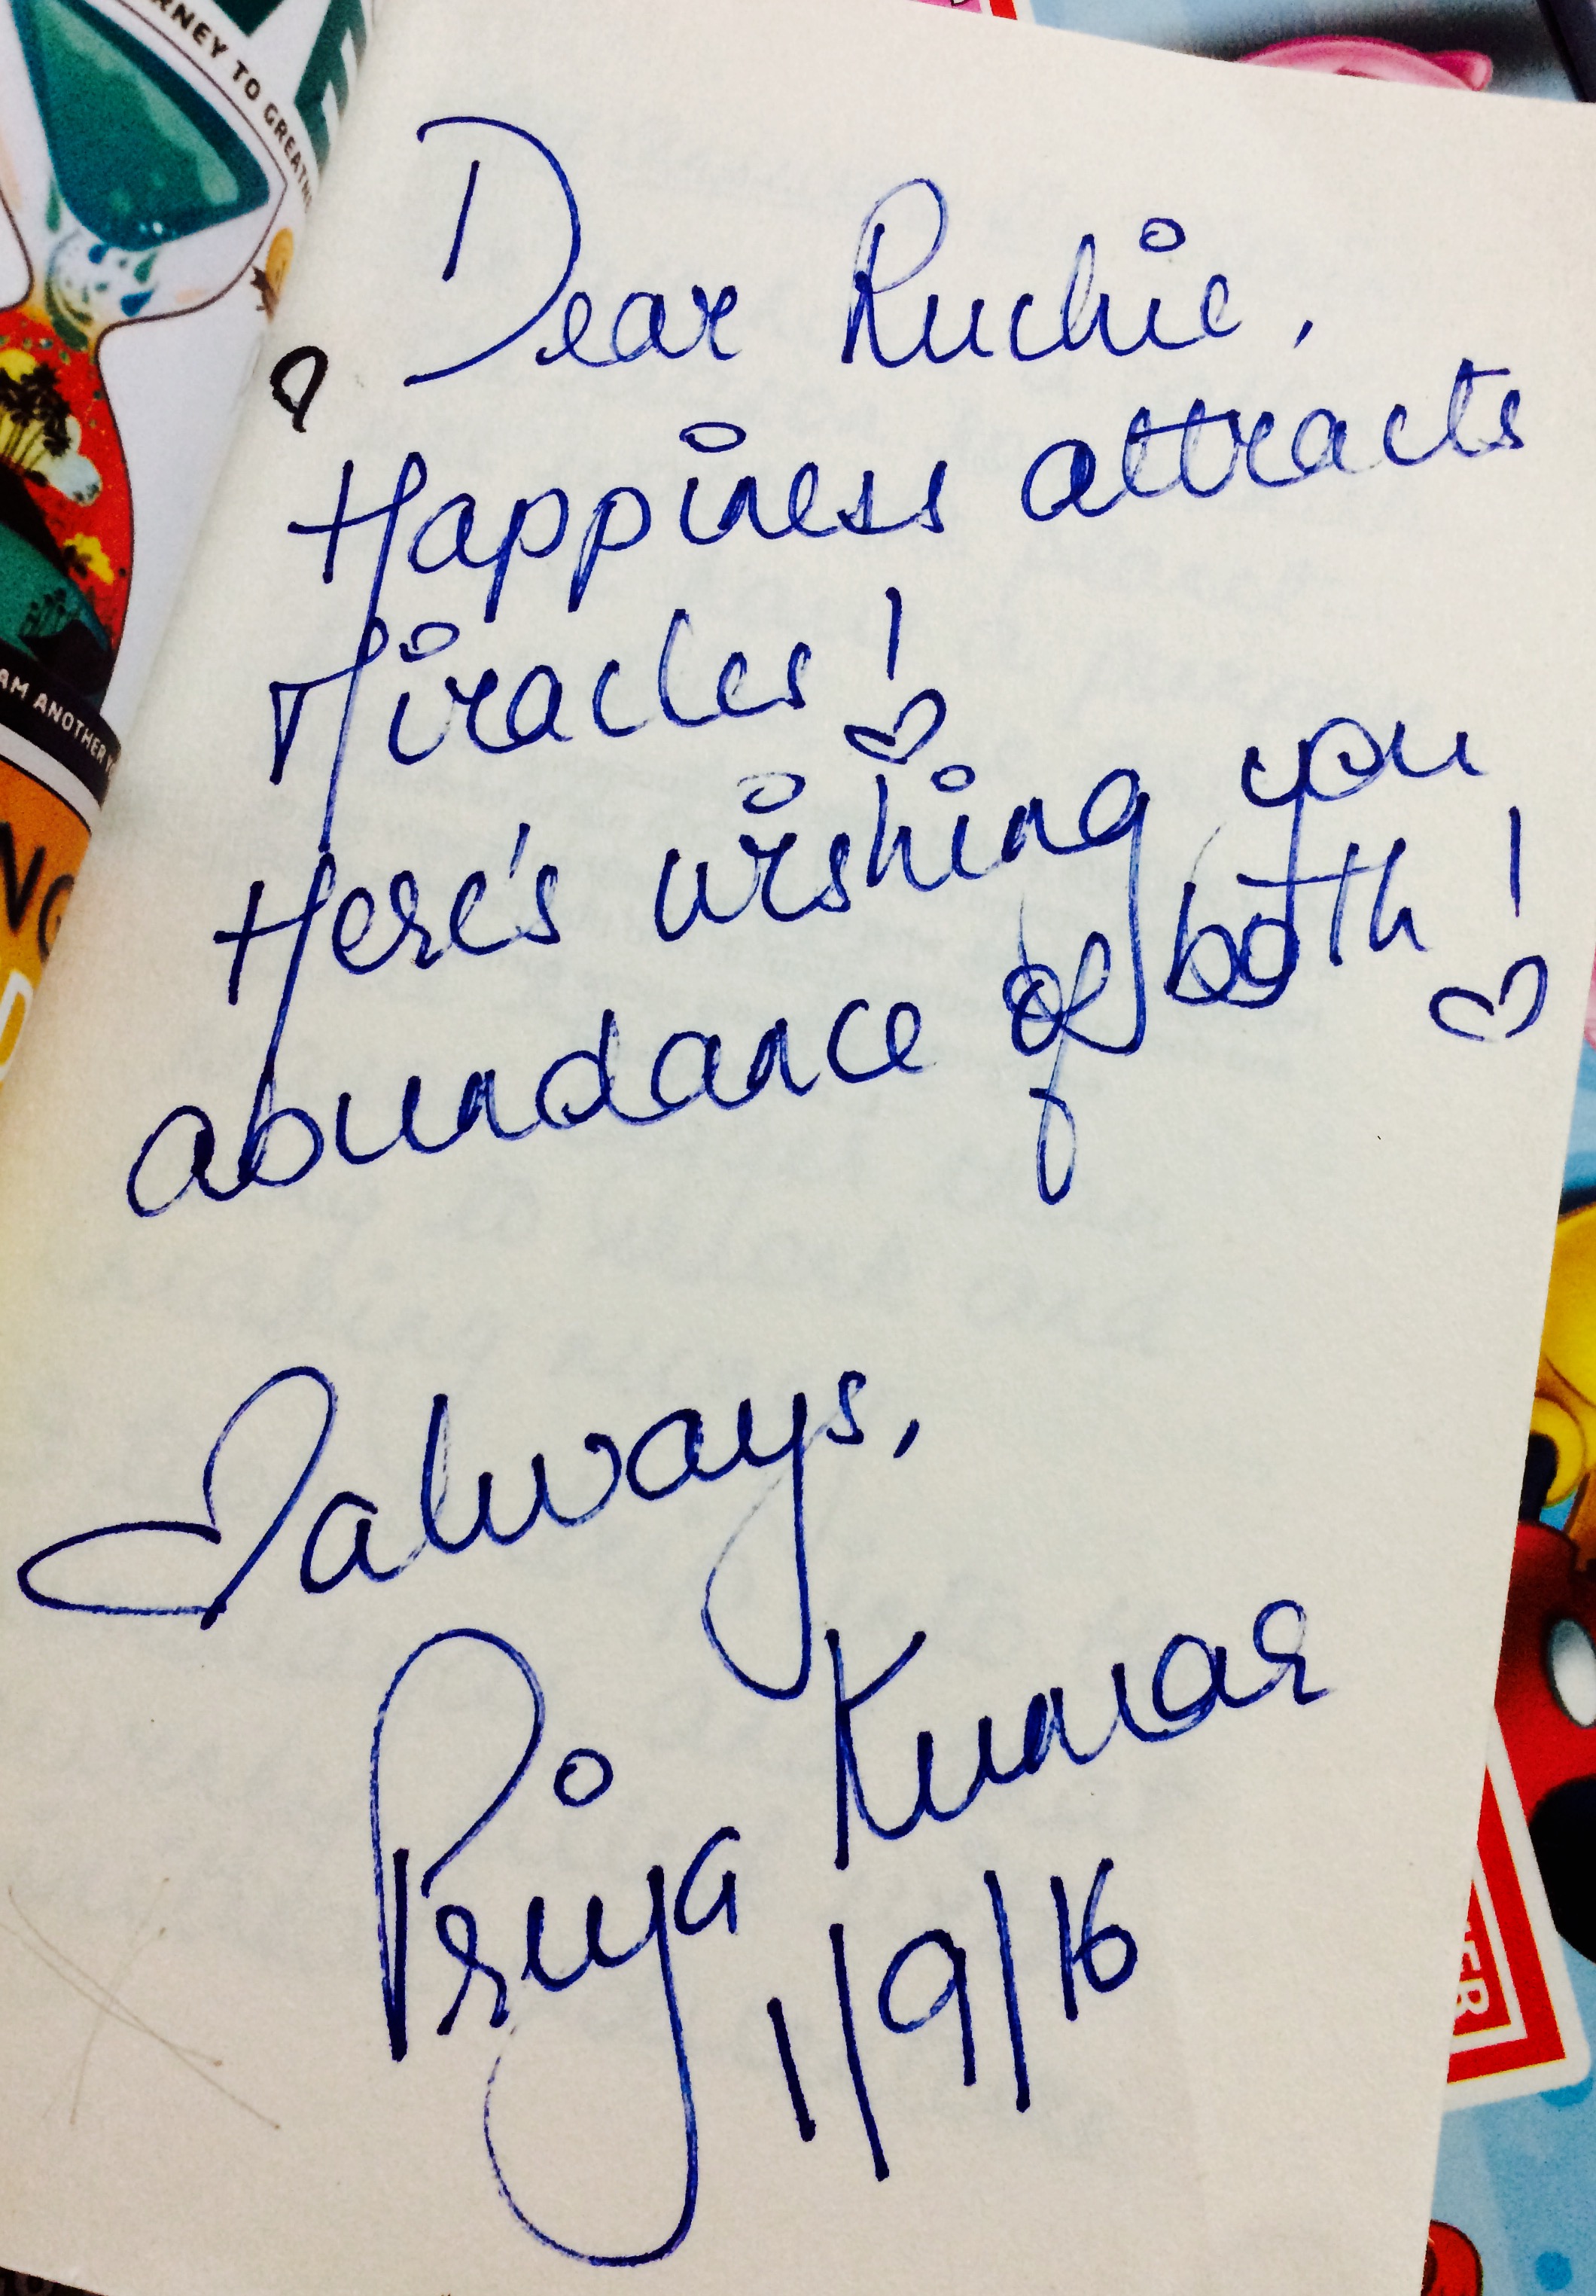 RNEY TO GREATN
Dear Ruchie,
Happiness attracts
Miracles!
Here's wishing you
abundance of both!
♡ always,
Priya Kumar
1/9/16
AM ANOTHER